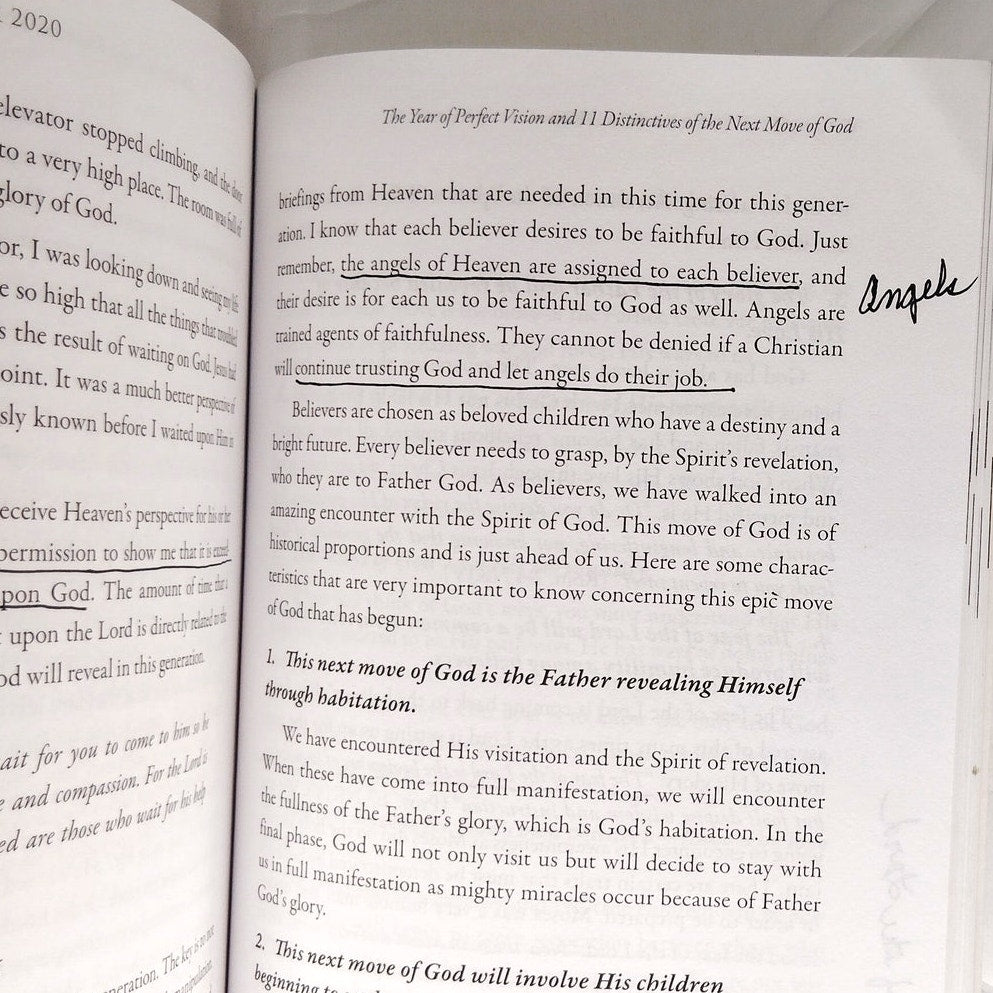 2020
elevator stopped climbing, and the door
to a very high place. The room was full of
glory of God.
or, I was looking down and seeing my life
e so high that all the things that troubled
s the result of waiting on God. Jesus had
oint. It was a much better perspective of
sly known before I waited upon Him in
eceive Heaven's perspective for his or her
permission to show me that it is
pon God. The amount of time that a
t upon the Lord is directly related to the
od will reveal in this generation.
ait for you to come to him so he
e and compassion. For the Lord is
ed are those who wait for his help
neration. The key is to not
manipulation,
The Year of Perfect Vision and 11 Distinctives of the Next Move of God
briefings from Heaven that are needed in this time for this gener-
ation. I know that each believer desires to be faithful to God. Just
remember, the angels of Heaven are assigned to each believer, and
their desire is for each us to be faithful to God as well. Angels are
trained agents of faithfulness. They cannot be denied if a Christian
will continue trusting God and let angels do their job.
Angels
Believers are chosen as beloved children who have a destiny and a
bright future. Every believer needs to grasp, by the Spirit's revelation,
who they are to Father God. As believers, we have walked into an
amazing encounter with the Spirit of God. This move of God is of
historical proportions and is just ahead of us. Here are some charac-
teristics that are very important to know concerning this epic move
of God that has begun:
1. This next move of God is the Father revealing Himself
through habitation.
We have encountered His visitation and the Spirit of revelation.
When these have come into full manifestation, we will encounter
the fullness of the Father's glory, which is God's habitation. In the
final phase, God will not only visit us but will decide to stay with
us in full manifestation as mighty miracles occur because of Father
God's glory.
2. This next move of God will involve His children
beginning to